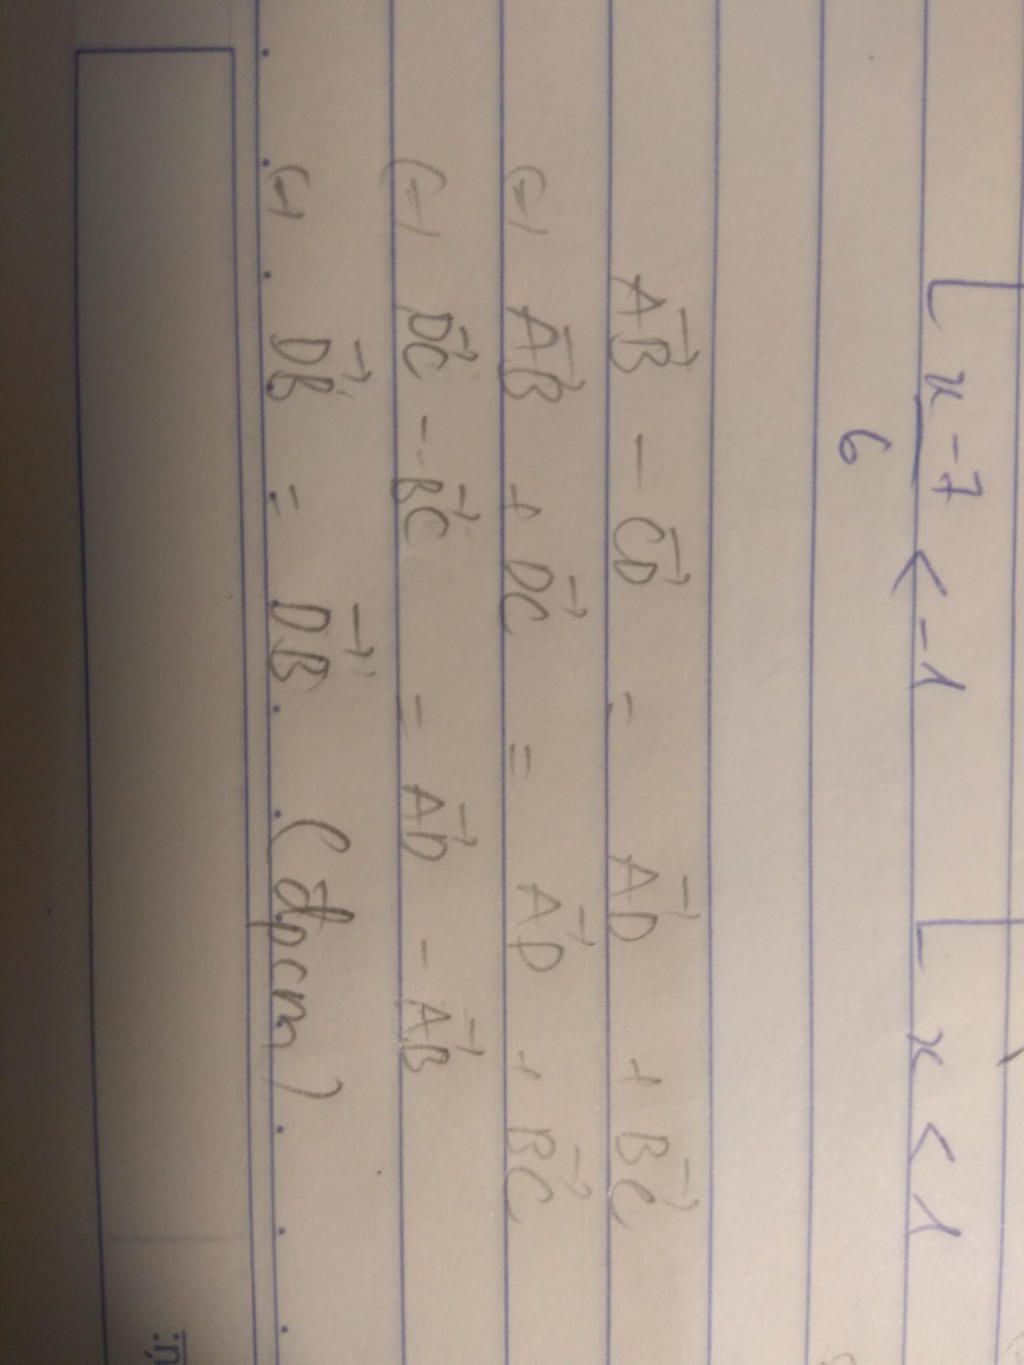 x-7/6 < -1 x < 1
AB→ - CD→ = AD→ + BC→
(-) AB→ + DC→ = AD→ + BC→
(-) DC→ - BC→ = AD→ - AB→
(-) DB→ = DB→ (đpcm)